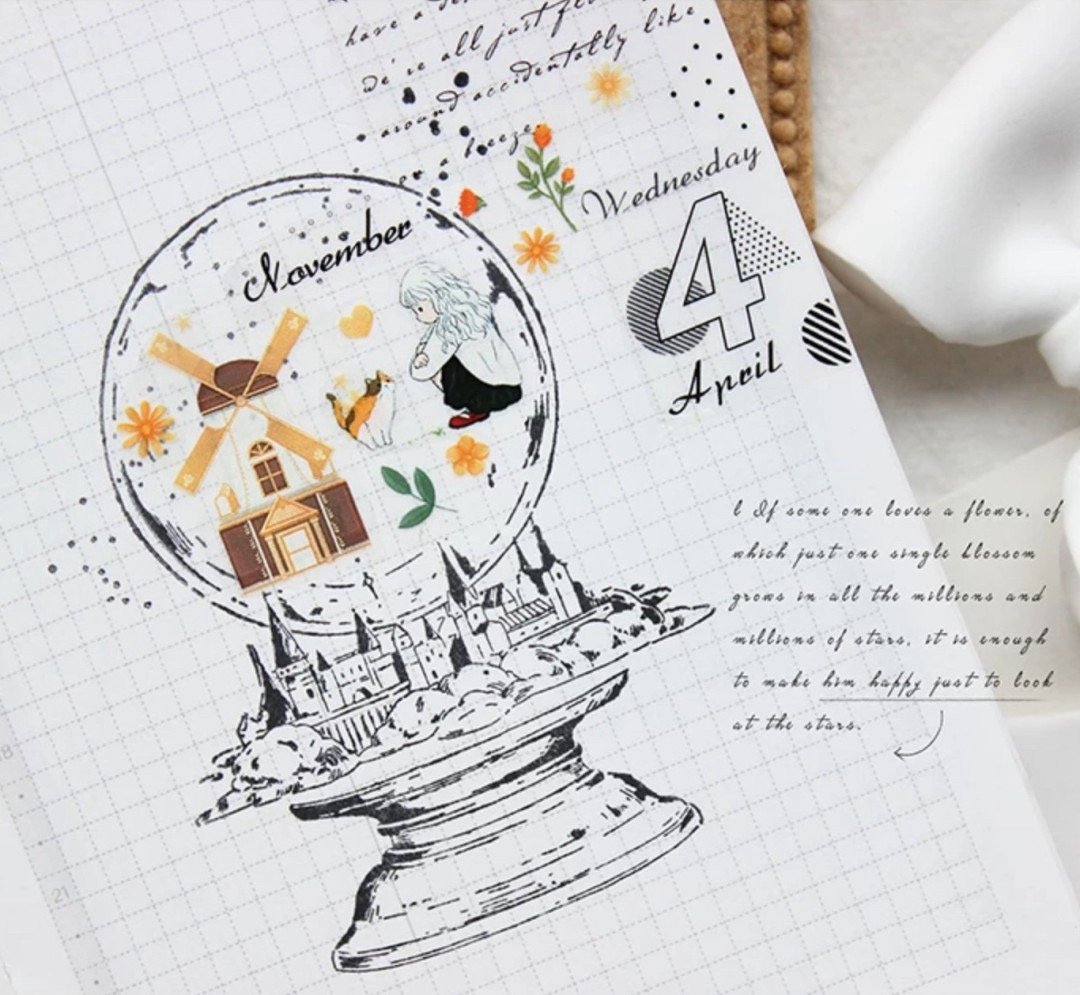 have a
we're all just
around accidentally like
a breeze
November
Wednesday
4
April
l If some one loves a flower, of
which just one single blossom
grows in all the millions and
millions of stars, it is enough
to make him happy just to look
at the stars.
18
21